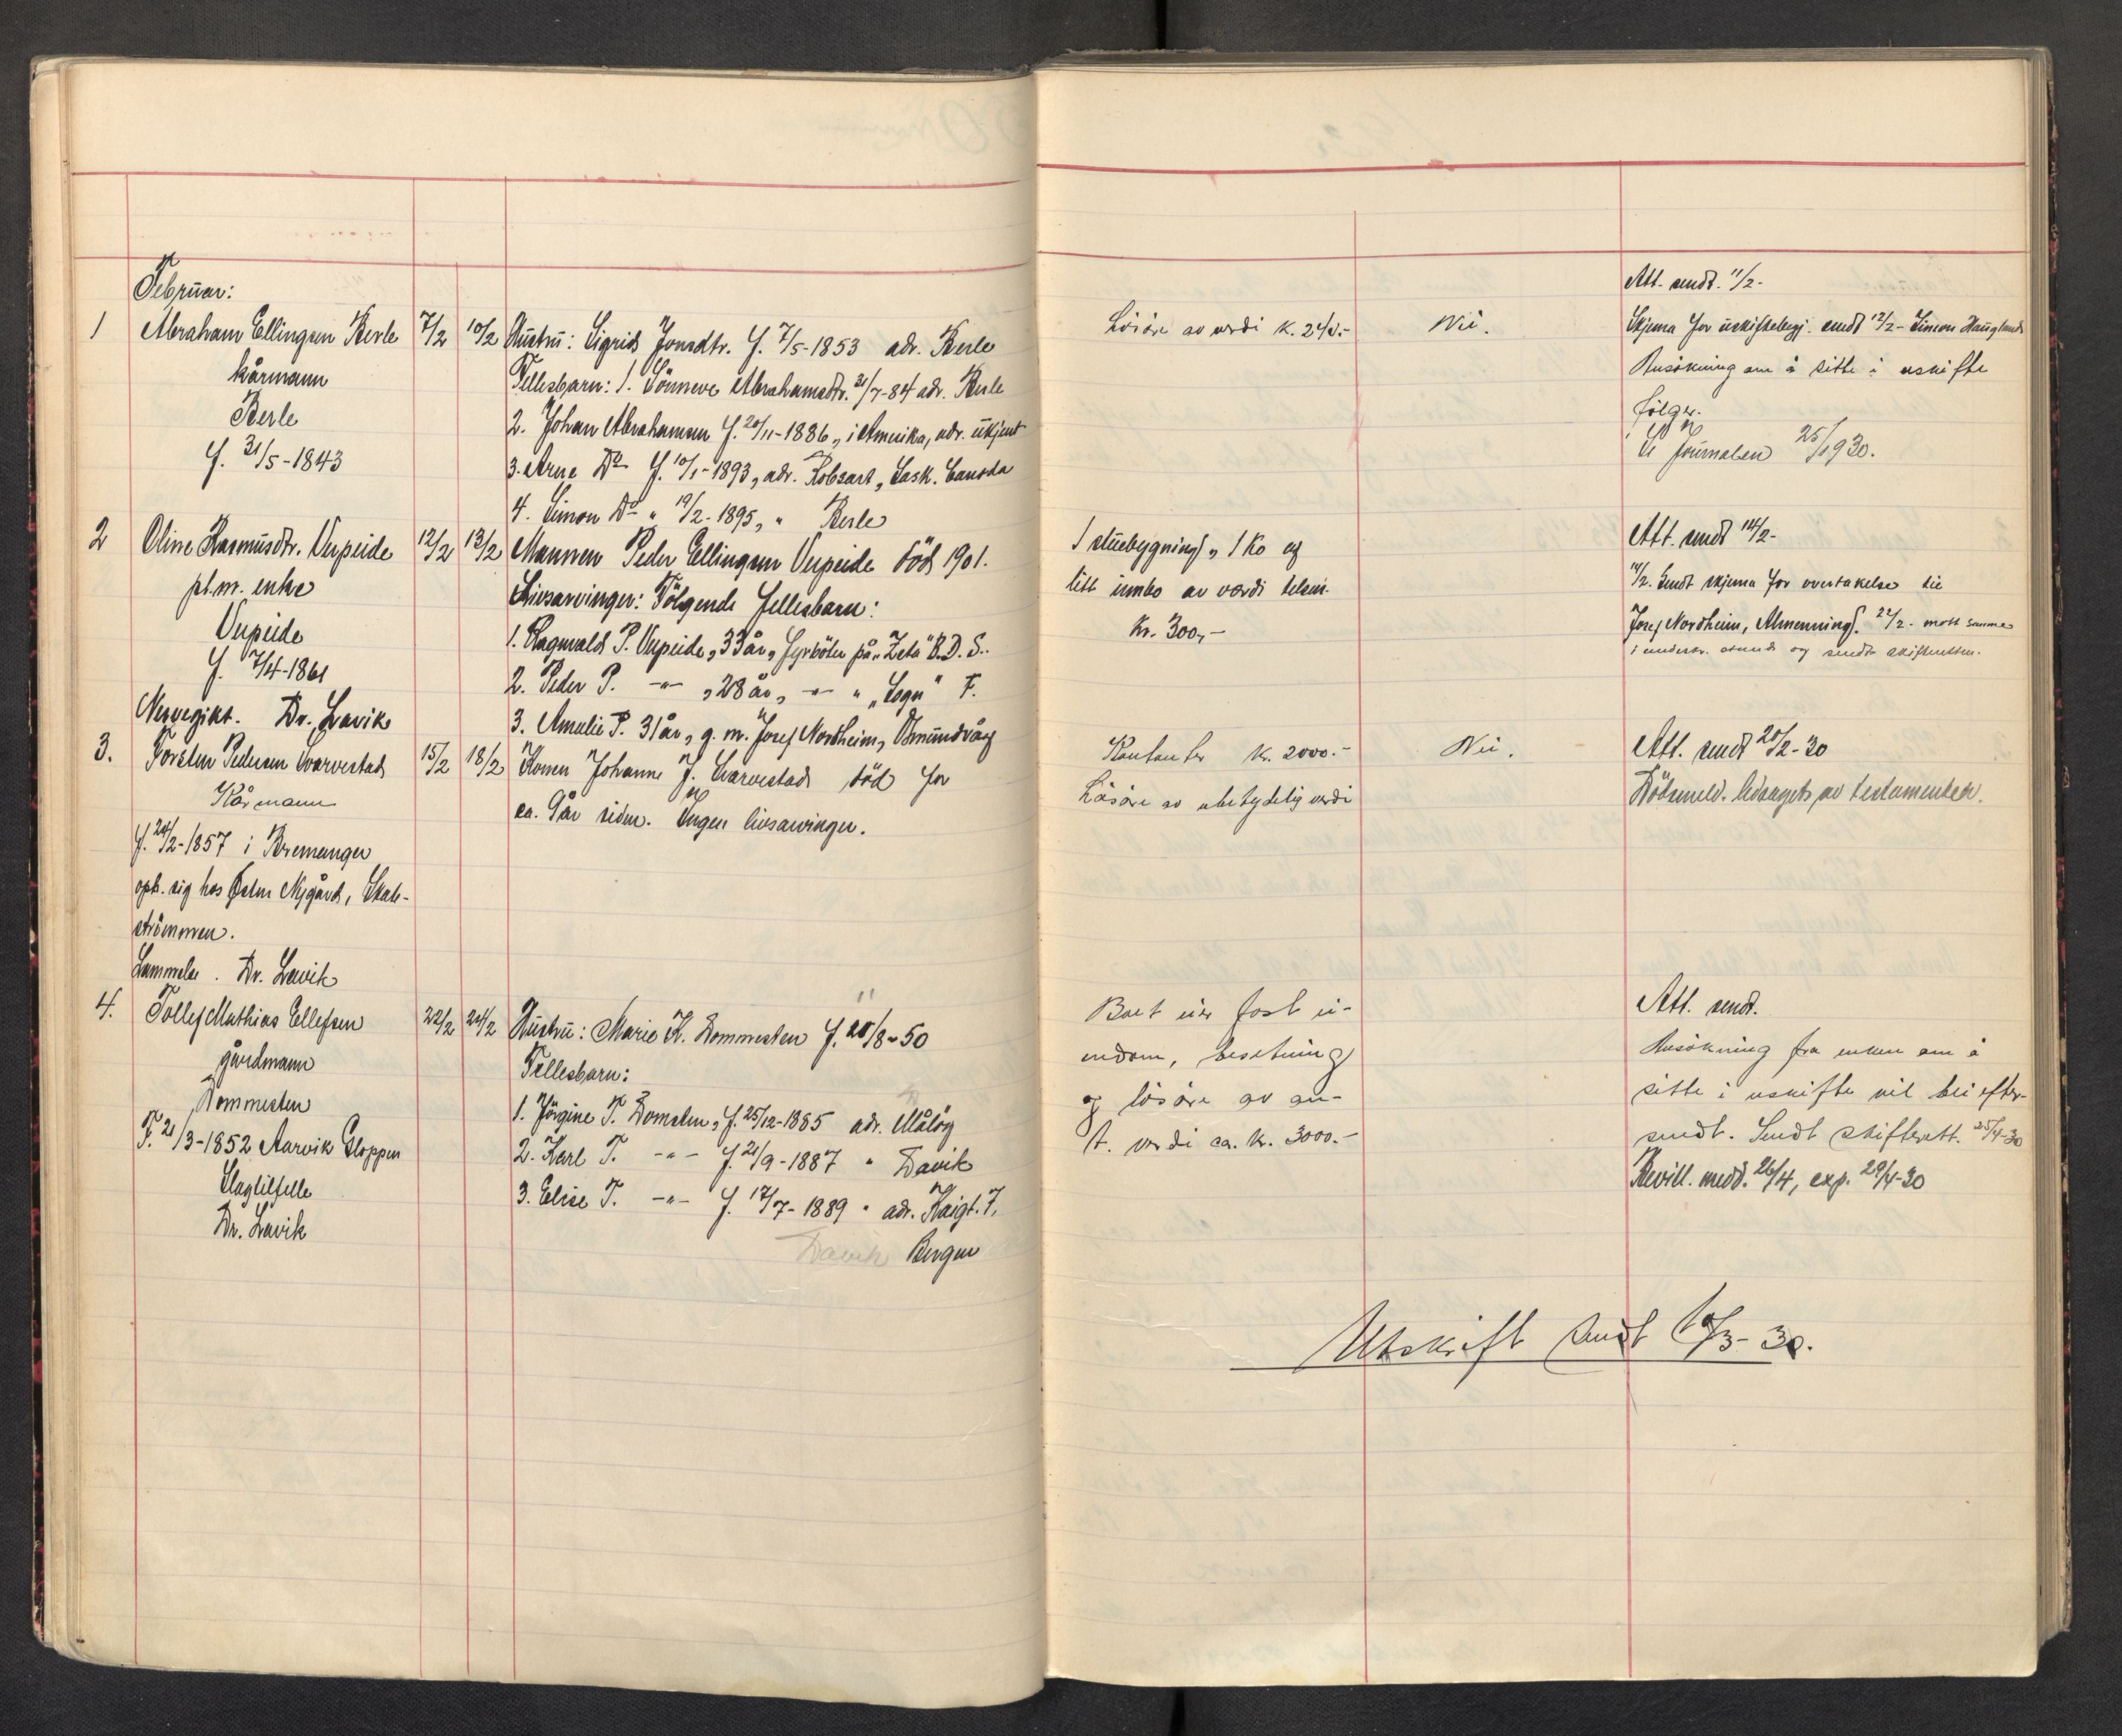 Februar:
1 Abraham Ellingsen Berle 7/2 10/2 Hustru: Sigrid Jonsdtr. f. 7/5-1853 adr. Berle
kårmann
Berle
f. 31/5-1843
Fellesbarn: 1. Sönneve Abrahamsdtr. 31/7-84 adr. Berle
2. Johan Abrahamsen f. 20/11-1886, i Amerika, adr. ukjent
3. Arne Do f. 10/1-1893, adr. Robsart, Sask. Canada
4. Simon Do " 19/2-1895, " Berle
2 Oline Rasmusdtr. Vupeide 12/2 13/2 Mannen Peder Ellingsen Vupeide död 1901.
pl.m. enke
Vupeide
f. 7/4-1861
Nervegikt. Dr. Lavik
Livsarvinger: Følgende fellesbarn:
1. Ragnvald P. Vupeide, 33 år, fyrböter på "Zeta" B.D.S.
2. Peder P. -"- , 28 år, -"- " "Sogn" F.
3. Amalie P. 31 år, g. m. Josef Nordheim,
3. Torsten Pedersen Svarvestad 15/2 18/2 Konen Johanne J. Svarvestad död for
Kårmann
f. 24/2-1857 i Bremanger
oph. sig hos Østen Nygård, Skate-
strömmen.
Lammelse. Dr. Lavik
ca. 9 år siden. Ingen livsarvinger.
4. Tollef Mathias Ellefsen 22/2 24/2 Hustru: Marie K. Dommesten f. 28/8-50
gårdmann
Dommesten
F. 21/3-1852 Aarvik Gloppen
Slagtilfelle
Dr. Lavik
Fellesbarn:
1. Jörgine T. Domsten, f. 25/12-1885 adr. Måløy
2. Karl T. -"- f. 21/9-1887 " Davik
3. Elise T. -"- f. 17/7-1889 " adr. Haigt. 7.
Davik Bergen
Lösöre av verdi k. 240.- Nei.
1 stuebygning, 1 ko og
litt innbo av verdi tilsm.
Kr. 300,-
Kontanter kr. 2000.- Nei.
Lösöre av ubetydelig verdi
Boet eier fast ei-
endom, besetning
og lösöre av an-
t. verdi ca. kr. 3000.-
Att. sendt. 11/2-
Skjema for uskiftebegj. sendt 12/2- Simon Haugland
Ansökning om å sitte i uskifte
fölger.
Journalen 25/1930.
Att. sendt 14/2-
14/2. Sendt skjema for overtakelse til
Josef Nordheim, Almenning. 22/2- mott samme
i underskr. stand og sendt skifteretten.
Att. sendt 20/2-30
Dödsmeld. ledsaget av testamenter.
Att. sendt.
Ansökning fra enken om å
sitte i uskifte vil bli efter-
sendt. Sendt skifterett. 25/4-30
Bevill. medd. 26/4, exp. 29/4-30
Utskrift sendt 10/3-30.